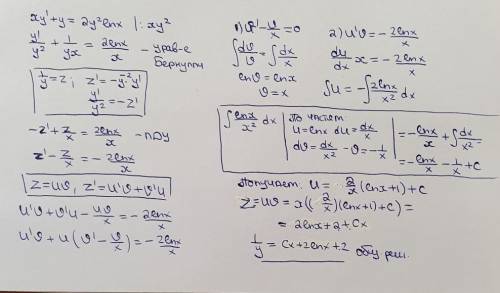 xy' + y = 2y² ln x |: xy²
y'/y² + 1/(yx) = 2lnx/x - урав-е Бернулли
1/y = z; z' = -y⁻²y'
y'/y² = -z'
-z' + z/x = 2lnx/x - ЛДУ
z' - z/x = -2lnx/x
z = uv, z' = u'v + v'u
u'v + v'u - uv/x = -2lnx/x
u'v + u(v' - v/x) = -2lnx/x
1) v' - v/x = 0
∫dv/v = ∫dx/x
ln v = ln x
v = x
2) u'v = -2lnx/x
du/dx x = -2lnx/x
∫u = -∫2lnx/x² dx
∫lnx/x² dx | по частям u = lnx du = dx/x dv = dx/x² - v = -1/x | = -lnx/x + ∫dx/x² =
= -lnx/x - 1/x + C
Получаем: u = 2/x (lnx+1) + C
z = uv = x((2/x)(lnx+1) + C) =
= 2lnx + 2 + Cx
1/y = Cx + 2lnx + 2 общ реш.